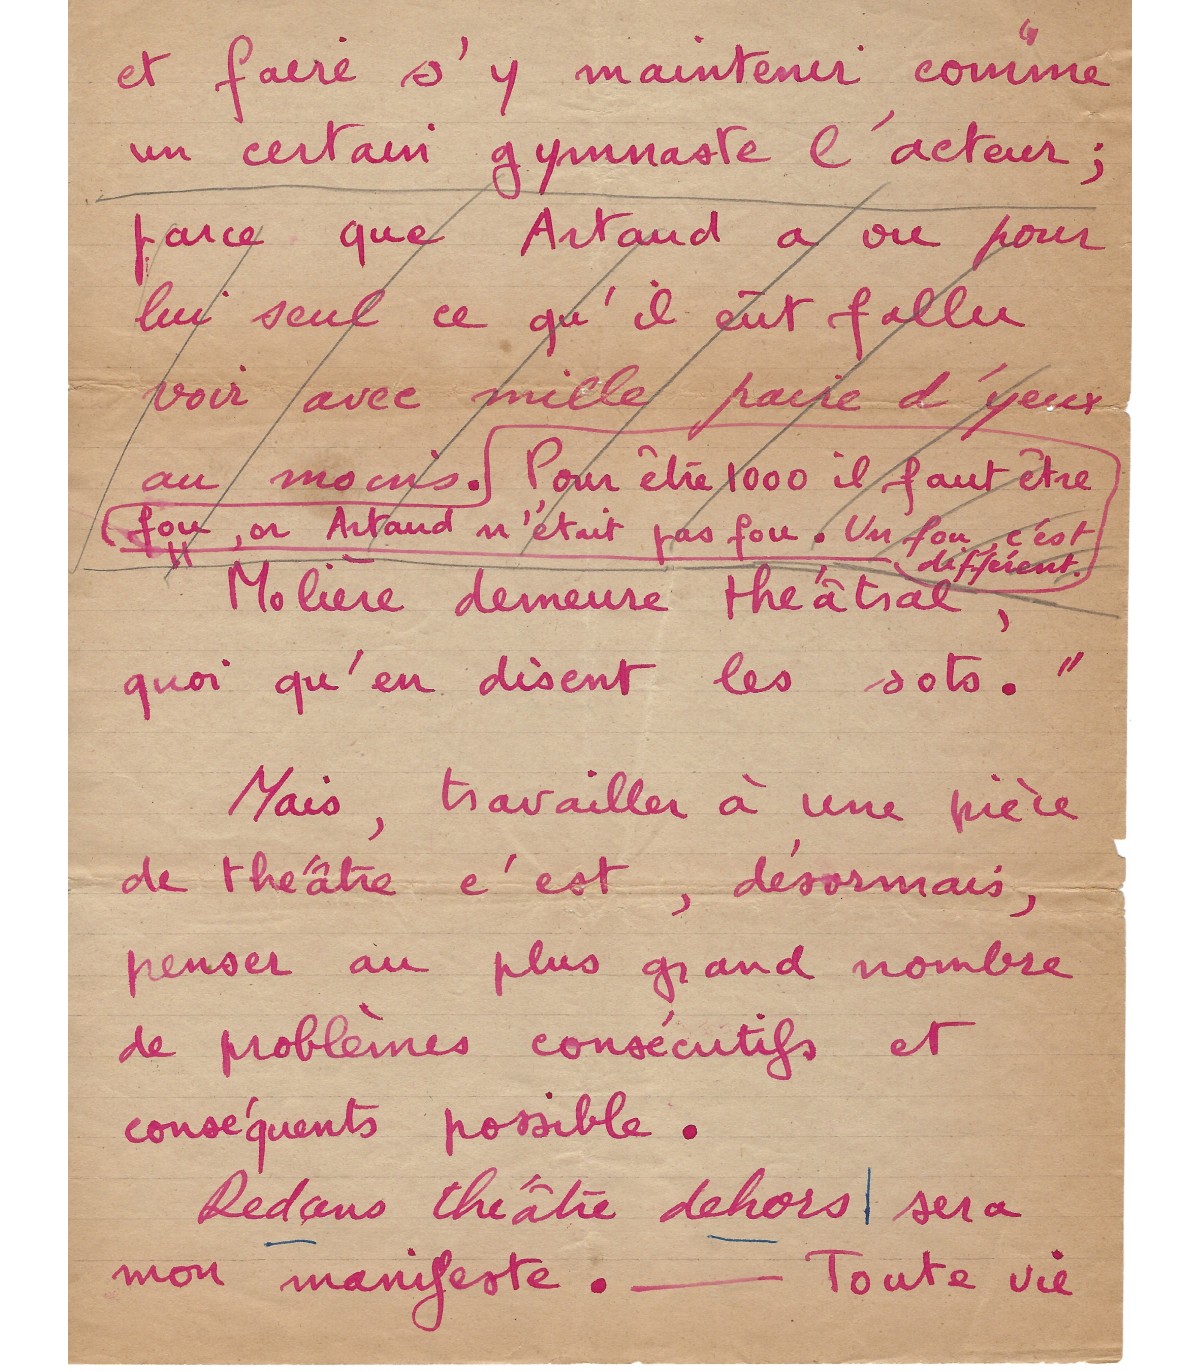 et faire s'y maintenir comme
un certain gymnaste l'acteur ;
parce que Artaud a vu pour
lui seul ce qu'il eût fallu
voir avec mille paire d'yeux
au moins. Pour être 1000 il faut être
fou, or Artaud n'était pas fou. Un fou, c'est
différent.
Molière demeure théâtral,
quoi qu'en disent les sots."
Mais, travailler à une pièce
de théâtre c'est, désormais,
penser au plus grand nombre
de problèmes consécutifs et
conséquents possible.
Dedans théâtre dehors sera
mon manifeste. — Toute vie